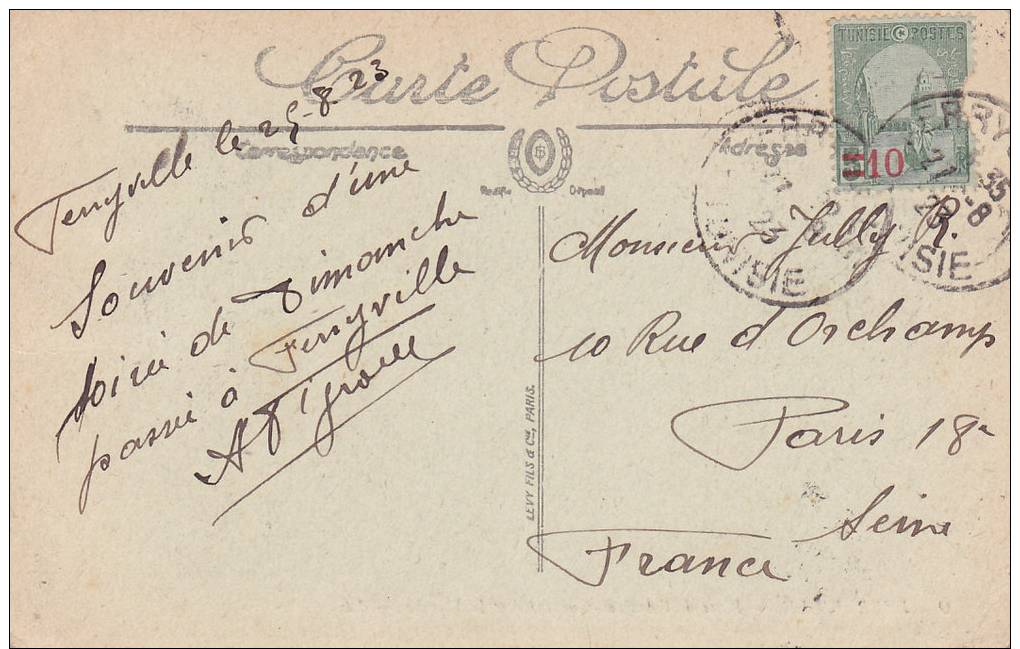 Carte Postale
Correspondance
Adresse
TUNISIE POSTES
10
Ferryville le 25-8 23
Souvenir d'une
soirée de Dimanche
passée à Ferryville
Monsieur Jully R.
10 Rue d'Orchamp
Paris 18e
Seine
France
LEVY FILS & Cie, PARIS.
FERRYV
TUNISIE